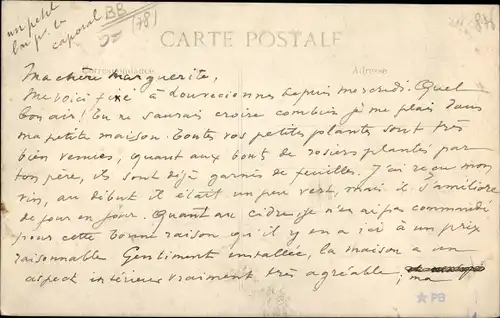 un petit
bm p. v
caporal
BB
(78)
876
CARTE POSTALE
Correspondance
Adresse
Ma chère Marguerite,
Me voici fixé à Louveciennes depuis mercredi. Quel
bon air ! Tu ne saurais croire combien je me plais dans
ma petite maison. Toutes vos petites plantes sont très
bien venues, quant aux bouts de rosiers plantés par
ton père, ils sont déjà garnis de feuilles. J'ai reçu mon
vin, au début il était un peu vert, mais il s'améliore
de jour en jour. Quant au cidre je n'en ai pas commandé
pour cette bonne raison qu'il y en a ici à un prix
raisonnable Gentiment installée, la maison a un
aspect intérieur vraiment très agréable ; ma
PB